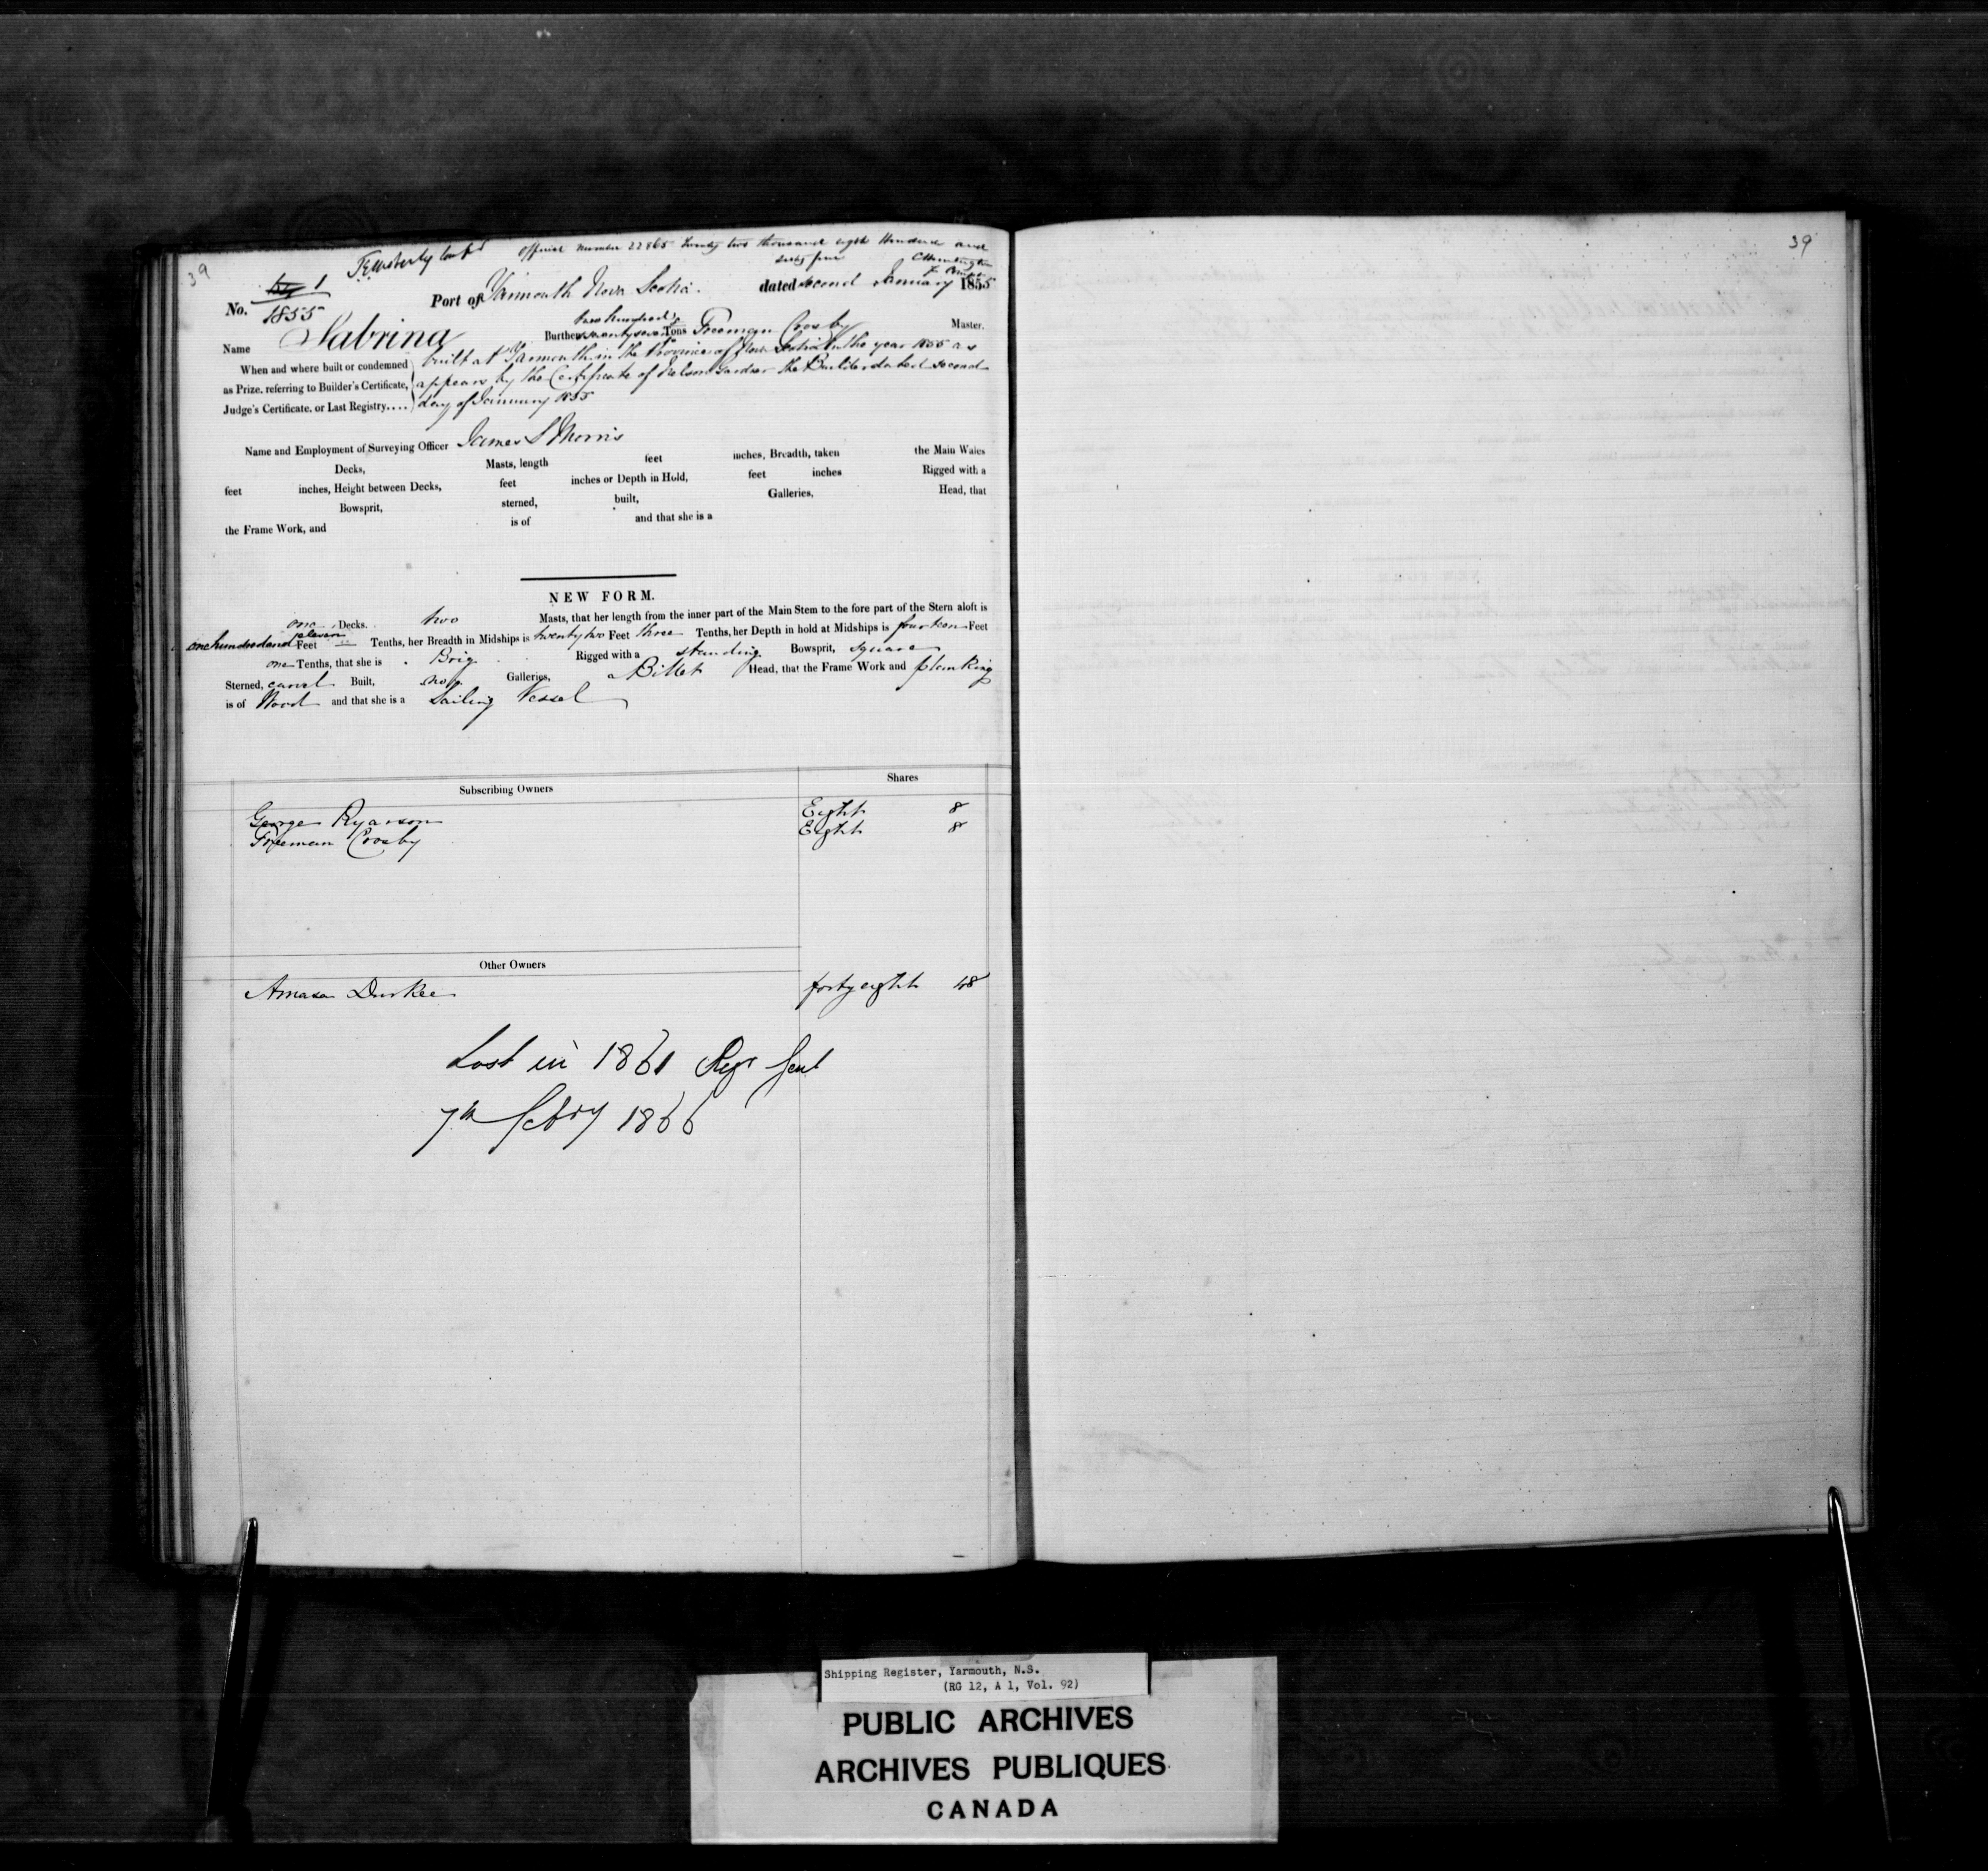 39
Official Number 22865 Twenty two thousand eight Hundred and
sixty five
No. 1
1855
Port of Yarmouth Nova Scotia. dated second January 1855
Name Sabrina Burthen two hundred & seventy seven Tons Freeman Crosby Master.
When and where built or condemned as Prize, referring to Builder's Certificate, Judge's Certificate, or Last Registry....
built at Yarmouth in the Province of Nova Scotia in the year 1855 as
appears by the Certificate of Nelson Gardner the Builder dated second
day of January 1855
Name and Employment of Surveying Officer James S Morris
Decks, Masts, length feet inches, Breadth, taken the Main Wales
feet inches, Height between Decks, feet inches or Depth in Hold, feet inches Rigged with a
Bowsprit, sterned, built, Galleries, Head, that
the Frame Work, and is of and that she is a
NEW FORM.
one Decks. two Masts, that her length from the inner part of the Main Stem to the fore part of the Stern aloft is
one hundred and eleven Feet Tenths, her Breadth in Midships is twenty two Feet three Tenths, her Depth in hold at Midships is fourteen Feet
one Tenths, that she is Brig Rigged with a standing Bowsprit, square
Sterned, carvel Built, no Galleries, a Billet Head, that the Frame Work and planking
is of Wood and that she is a Sailing Vessel
Subscribing Owners Shares
George Ryarson Eight 8
Freeman Crosby Eight 8
Other Owners
Amasa Durkee forty eight 48
Lost in 1861 Regr Sent
7th Febry 1866
39
Shipping Register, Yarmouth, N.S.
(RG 12, A 1, Vol. 92)
PUBLIC ARCHIVES
ARCHIVES PUBLIQUES
CANADA